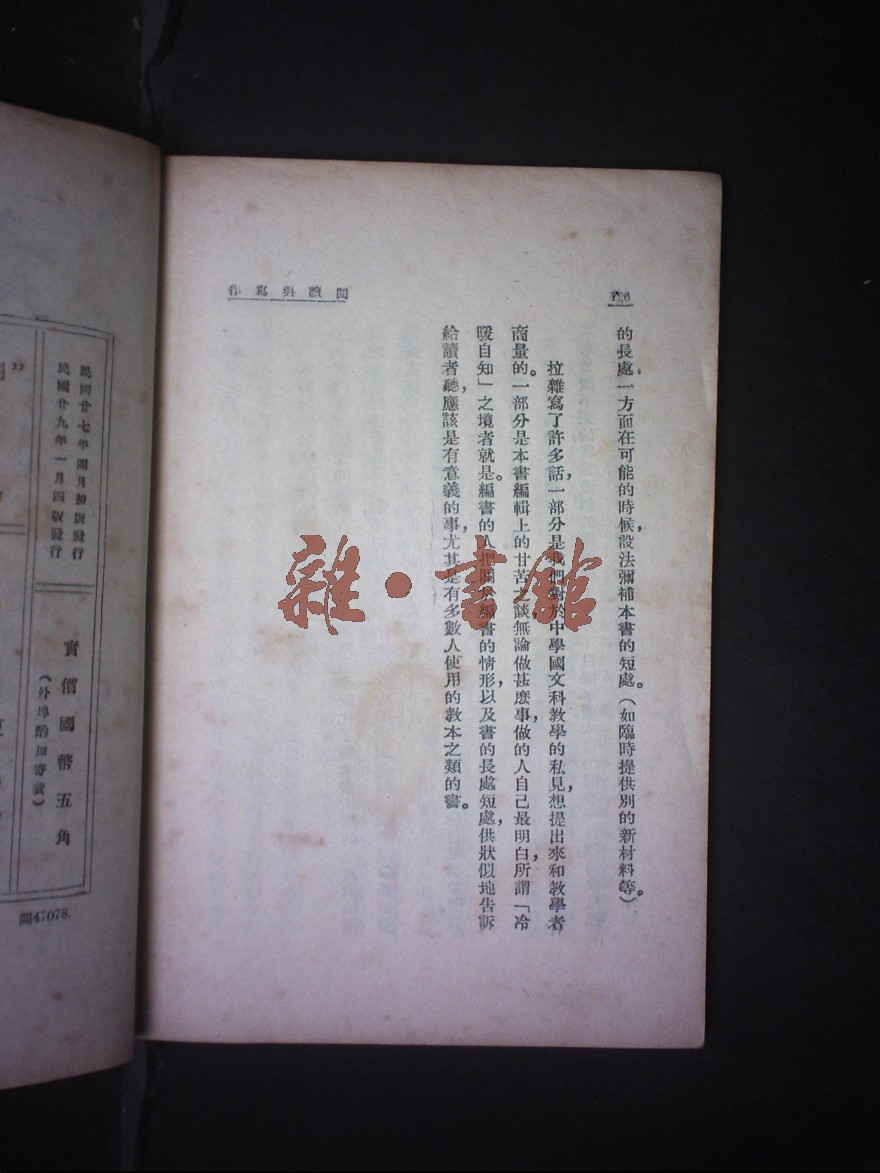 閱讀與寫作
的長處，一方面在可能的時候，設法彌補本書的短處。（如臨時提供別的新材料等。）
拉雜寫了許多話，一部分是我們對於中學國文科教學的私見，想提出來和教學者
商量的。一部分是本書編輯上的甘苦之談，無論做甚麽事，做的人自己最明白，所謂「冷
暖自知」之境者就是。編書的人把關於編書的情形，以及書的長處短處，供狀似地告訴
給讀者聽，應該是有意義的事，尤其是有多數人使用的教本之類的書。
雜·書館
民國廿七年四月初版發行
民國廿九年一月四版發行
實價國幣五角
（外埠酌加寄費）
開47078.